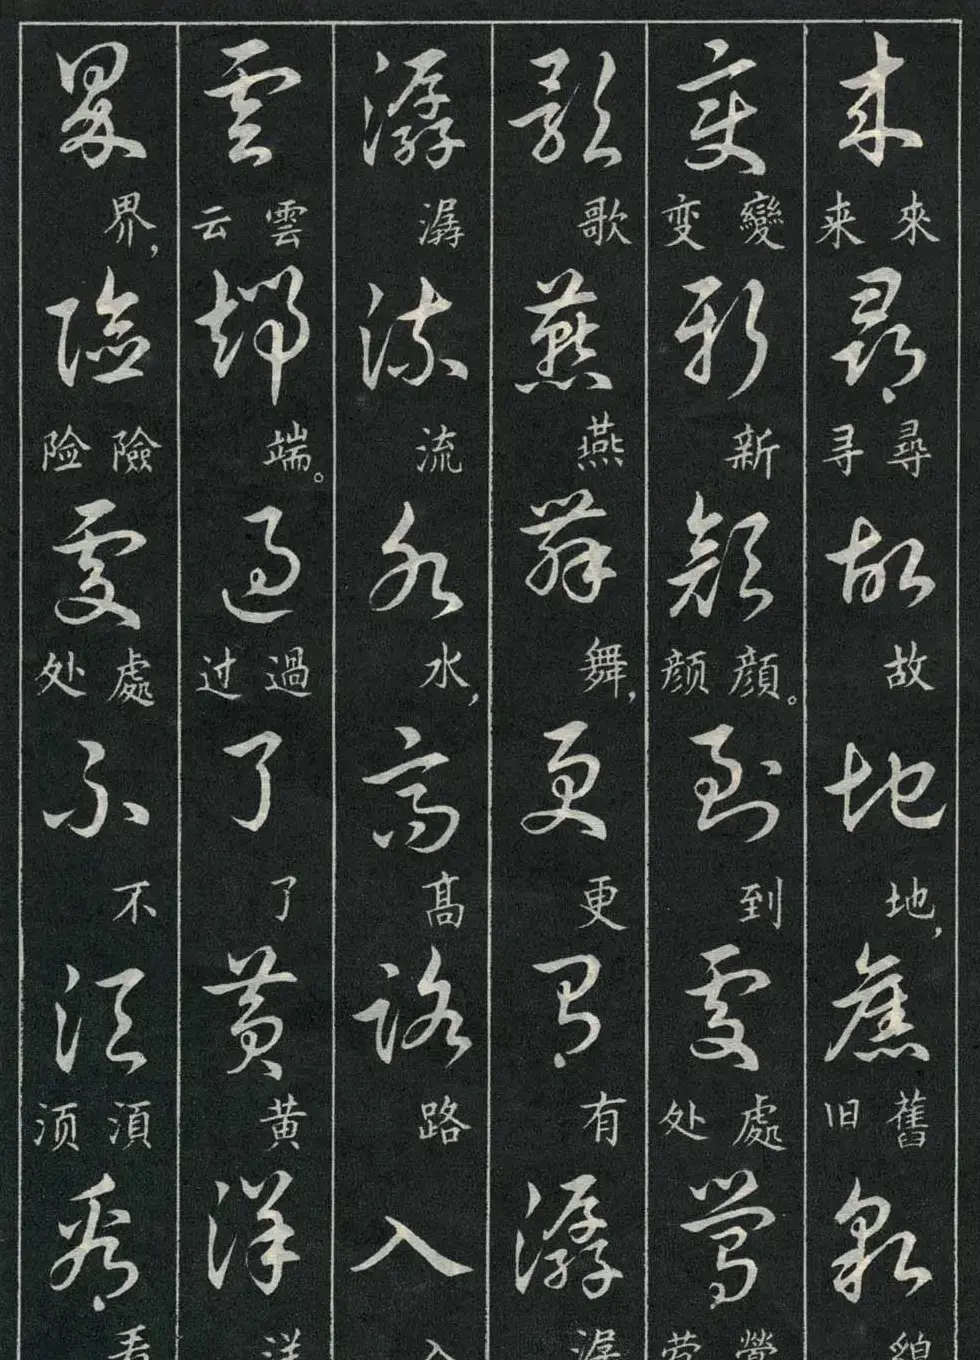 来 來 来 尋 尋 寻 故 故 地 地， 舊 舊 旧 貌
變 變 变 新 新 顔 顔 颜。 到 到 處 處 处 鶯
歌 歌 燕 燕 舞 舞， 更 更 有 有 潺 潺
潺 潺 流 流 水 水， 髙 髙 路 路 入 入
雲 雲 云 端 端。 過 過 过 了 了 黄 黄 洋 洋
界 界， 險 險 险 處 處 处 不 不 湏 湏 须 看 看